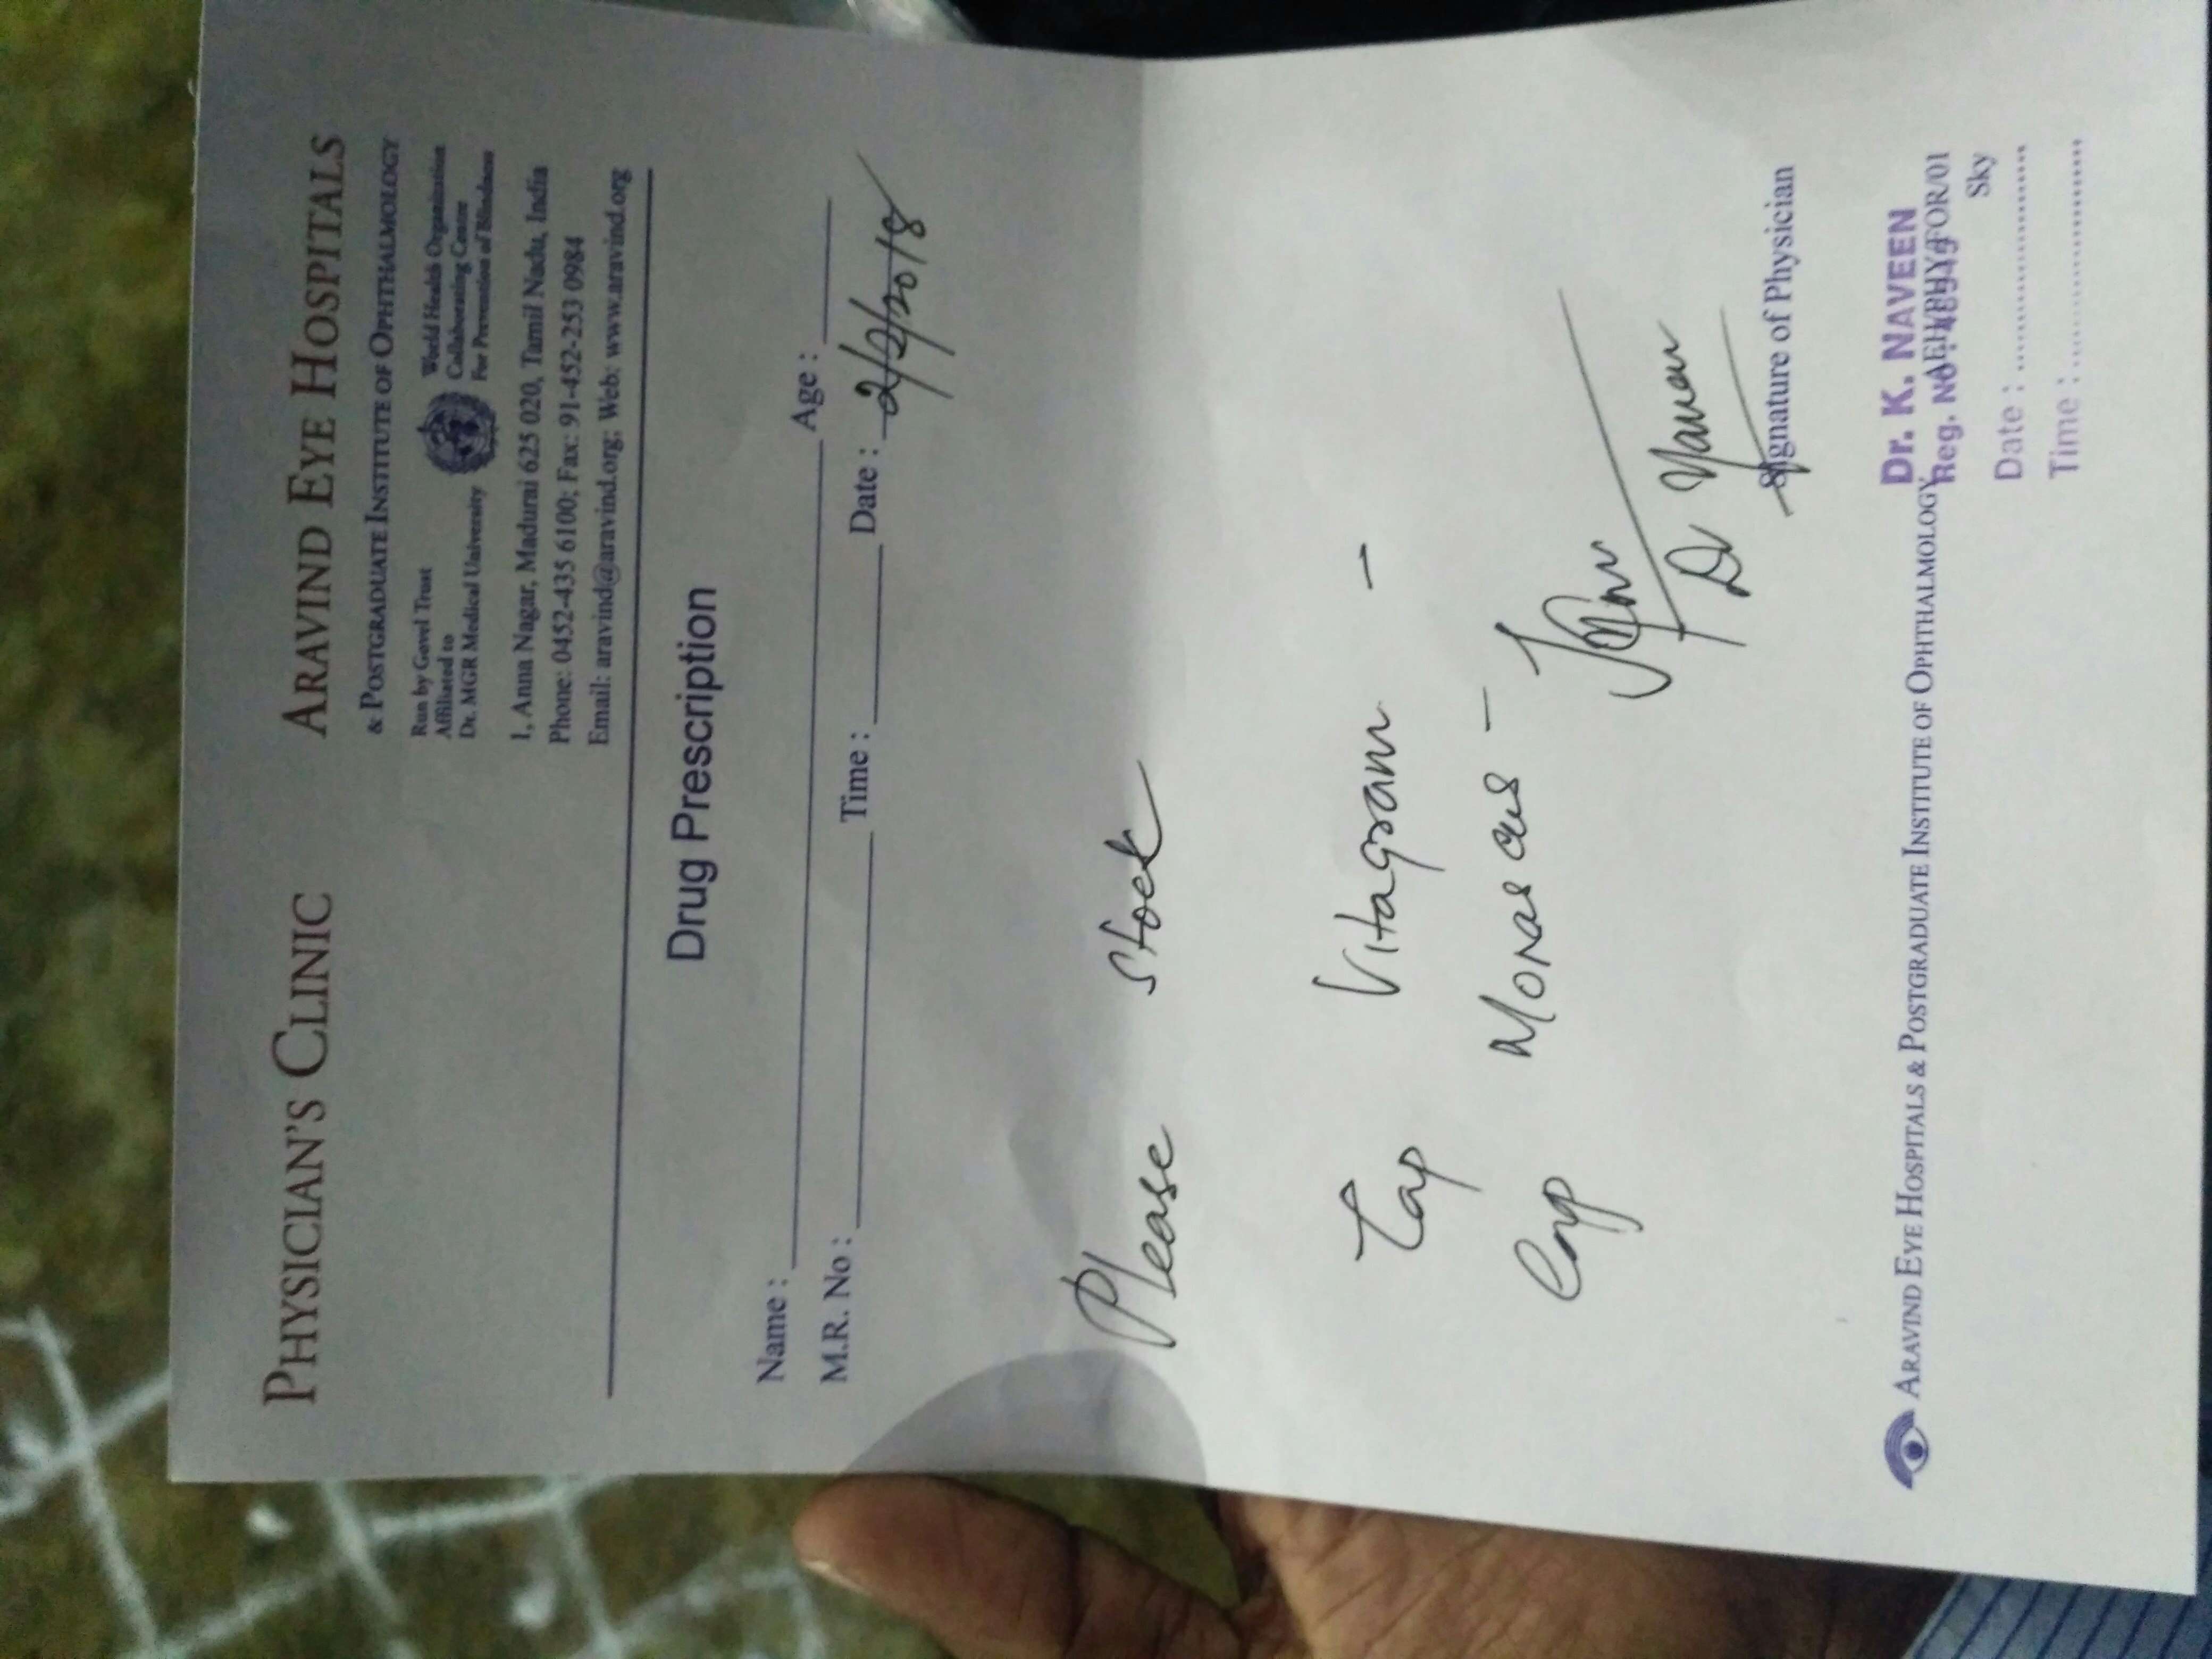 PHYSICIAN'S CLINIC
ARAVIND EYE HOSPITALS
& POSTGRADUATE INSTITUTE OF OPHTHALMOLOGY
Run by Govel Trust
Affiliated to
Dr. MGR Medical University
World Health Organization
Collaborating Centre
For Prevention of Blindness
1, Anna Nagar, Madurai 625 020, Tamil Nadu, India
Phone: 0452-435 6100; Fax: 91-452-253 0984
Email: aravind@aravind.org; Web: www.aravind.org
Drug Prescription
Name : Age :
M.R. No : Time : Date : 2/2/2018
Please stock
Tap Vitagram -
Cap Monascus -
Dr Naveen
Signature of Physician
Dr. K. NAVEEN
Reg. No.
ARAVIND EYE HOSPITALS & POSTGRADUATE INSTITUTE OF OPHTHALMOLOGY
AEH/PHY/FOR/01
Sky
Date :
Time :